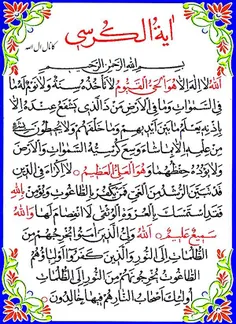 اية الكرسي
بسم الله الرحمن الرحيم
الله لا اله الا هو الحي القيوم لا تأخذه سنة ولا نوم له ما
في السموات وما في الارض من ذا الذي يشفع عنده الا
باذنه يعلم ما بين ايديهم وما خلفهم ولا يحيطون بشئ من
علمه الا بما شاء وسع كرسيه السموات والارض
ولا يؤده حفظهما وهو العلي العظيم لا اكراه في الدين
قد تبين الرشد من الغي فمن يكفر بالطاغوت ويؤمن بالله
فقد استمسك بالعروة الوثقى لا انفصام لها والله
سميع عليم الله ولي الذين آمنوا يخرجهم من
الظلمات الى النور والذين كفروا اولياؤهم
الطاغوت يخرجونهم من النور الى الظلمات
اولئك اصحاب النار هم فيها خالدون